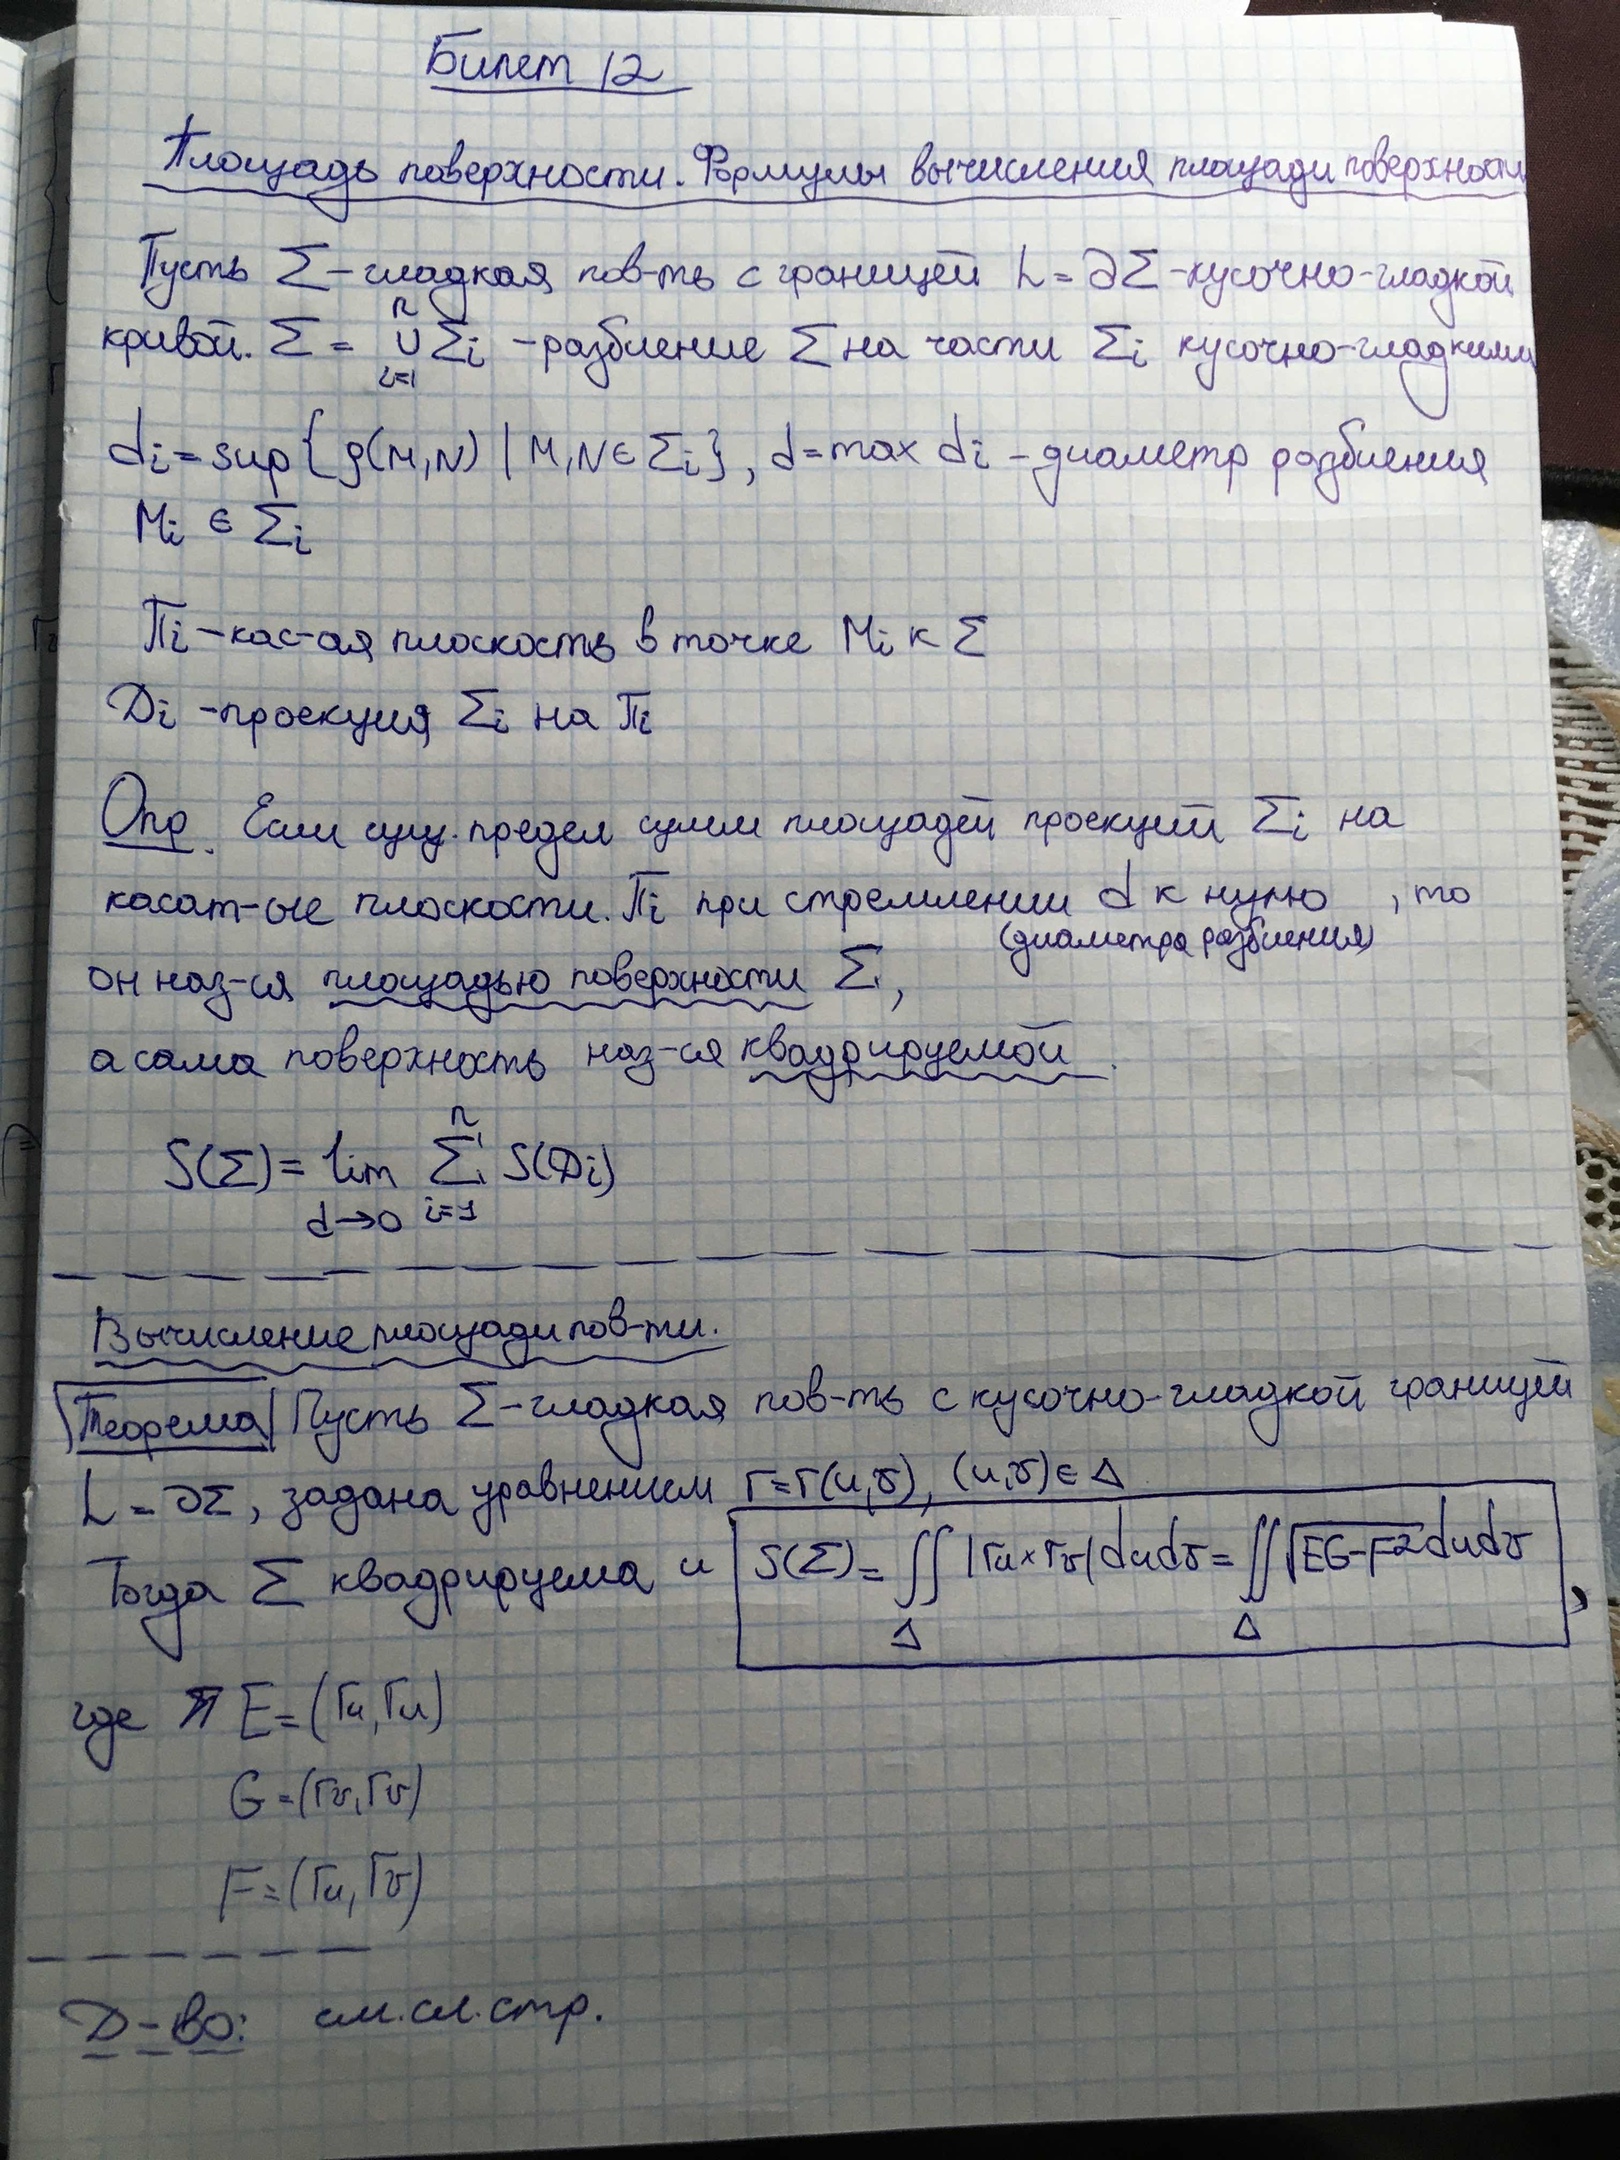 Билет 12
Площадь поверхности. Формулы вычисления площади поверхности
Пусть Σ – гладкая пов-ть с границей L = ∂Σ - кусочно-гладкой
кривой. Σ = ⋃ᵢ₌₁ⁿ Σi - разбиение Σ на части Σi кусочно-гладкими
di = sup{ρ(M,N) | M,N ∈ Σi}, d = max di – диаметр разбиения
Mi ∈ Σi
Πi – кас-ая плоскость в точке Mi к Σ
Di - проекция Σi на Πi
Опр. Если сущ. предел сумм площадей проекций Σi на
касат-ые плоскости. Πi при стремлении d к нулю , то
(диаметра разбиения)
он наз-ся площадью поверхности Σ,
а сама поверхность наз-ся квадрируемой.
S(Σ) = lim_{d→0} Σ_{i=1}^{n} S(Di)
Вычисление площади пов-ти.
Теорема Пусть Σ – гладкая пов-ть с кусочно-гладкой границей
L = ∂Σ, задана уравнением r = r(u,v), (u,v) ∈ Δ
Тогда Σ квадрируема и S(Σ) = ∬_Δ |ru × rv| du dv = ∬_Δ √(EG-F²) du dv,
где E = (ru, ru)
G = (rv, rv)
F = (ru, rv)
Д-во: см. сл. стр.